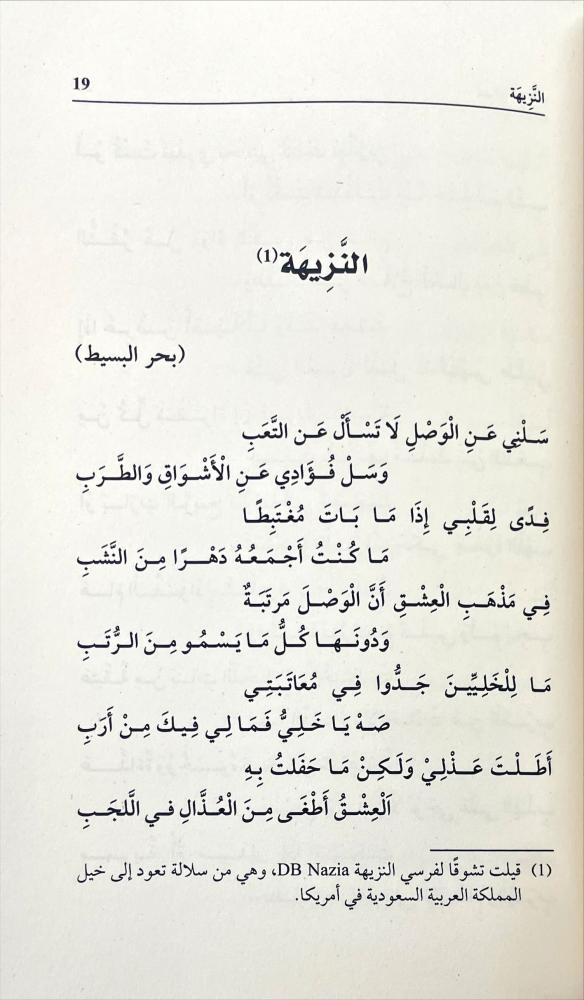 النَّزِيهَة
19
النَّزِيهَة(1)
(بحر البسيط)
سَلْنِي عَـنِ الْوَصْلِ لَا تَسْـأَلْ عَـن التَّعَبِ
وَسَـلْ فُـؤَادِي عَـنِ الْأَشْـوَاقِ وَالطَّـرَبِ
فِـدًى لِقَلْبِـي إِذَا مَـا بَـاتَ مُغْتَبِطًـا
مَـا كُنْـتُ أَجْمَعُـهُ دَهْـرًا مِـنَ النَّشَـبِ
فِي مَذْهَبِ الْعِشْـقِ أَنَّ الْوَصْـلَ مَرْتَبَـةٌ
وَدُونَـهَـا كُلُّ مَـا يَسْـمُو مِـنَ الـرُّتَـبِ
مَـا لِلْخَلِيِّيـنَ جَـدُّوا فِـي مُعَاتَبَتِـي
صَـهْ يَـا خَلِـيُّ فَمَـا لِـي فِيـكَ مِـنْ أَرَبِ
أَطَلْـتَ عَـذْلِـيْ وَلَـكِـنْ مَـا حَفَلْتُ بِـهِ
اَلْعِشْـقُ أَطْغَـى مِـنَ الْعُـذَّالِ فـي اللَّجَـبِ
(1) قيلت تشوقًا لفرسي النزيهة DB Nazia، وهي من سلالة تعود إلى خيل
المملكة العربية السعودية في أمريكا.